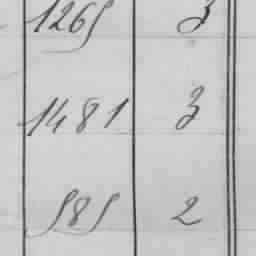 1265 3
1481 3
585 2